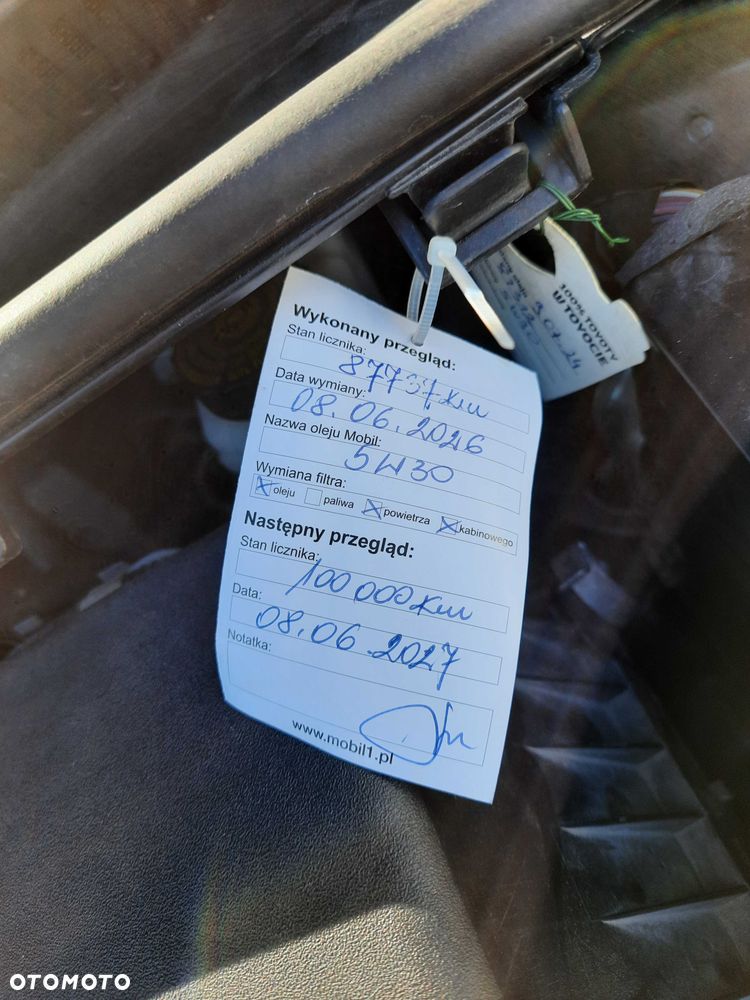 Wykonany przegląd:
Stan licznika:
87737 km
Data wymiany:
08.06.2026
Nazwa oleju Mobil:
5W30
Wymiana filtra:
oleju paliwa powietrza kabinowego
Następny przegląd:
Stan licznika:
100 000 km
Data:
08.06.2027
Notatka:
www.mobil1.pl
100% TOYOTY
W TOYOCIE
OTOMOTO